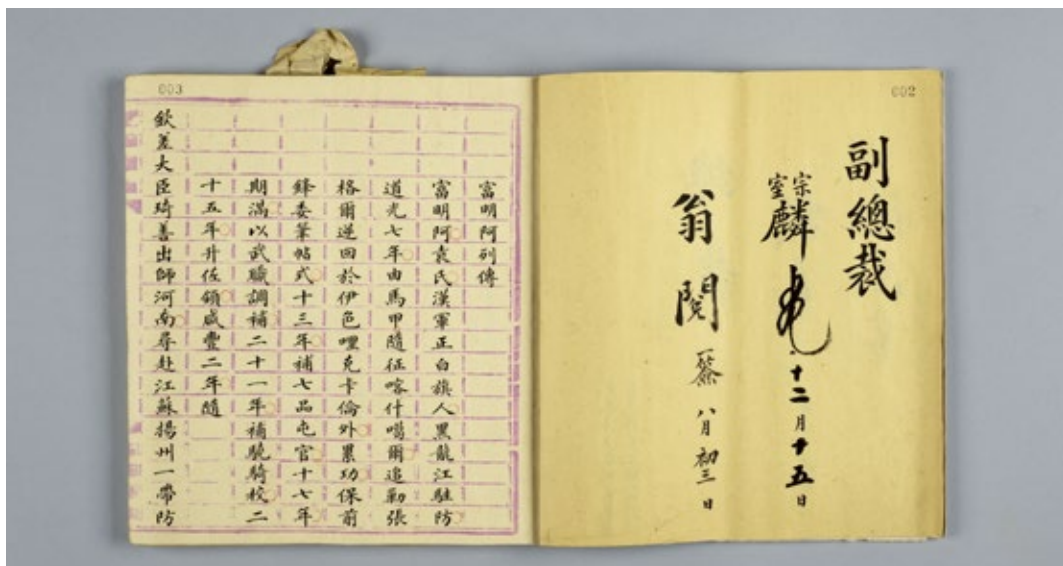 002
副總裁
宗室麟 十二月十五日
翁閱 八月初三日
003
富明阿列傳
富明阿袁氏漢軍正白旗人黑龍江駐防
道光七年由馬甲隨征喀什噶爾追勦張
格爾逆回於伊色哩克卡倫外累功保前
鋒委筆帖式十三年補七品屯官十七年
期滿以武職調補二十一年補驍騎校二
十五年升佐領咸豐二年隨
欽差大臣琦善出師河南尋赴江蘇揚州一帶防